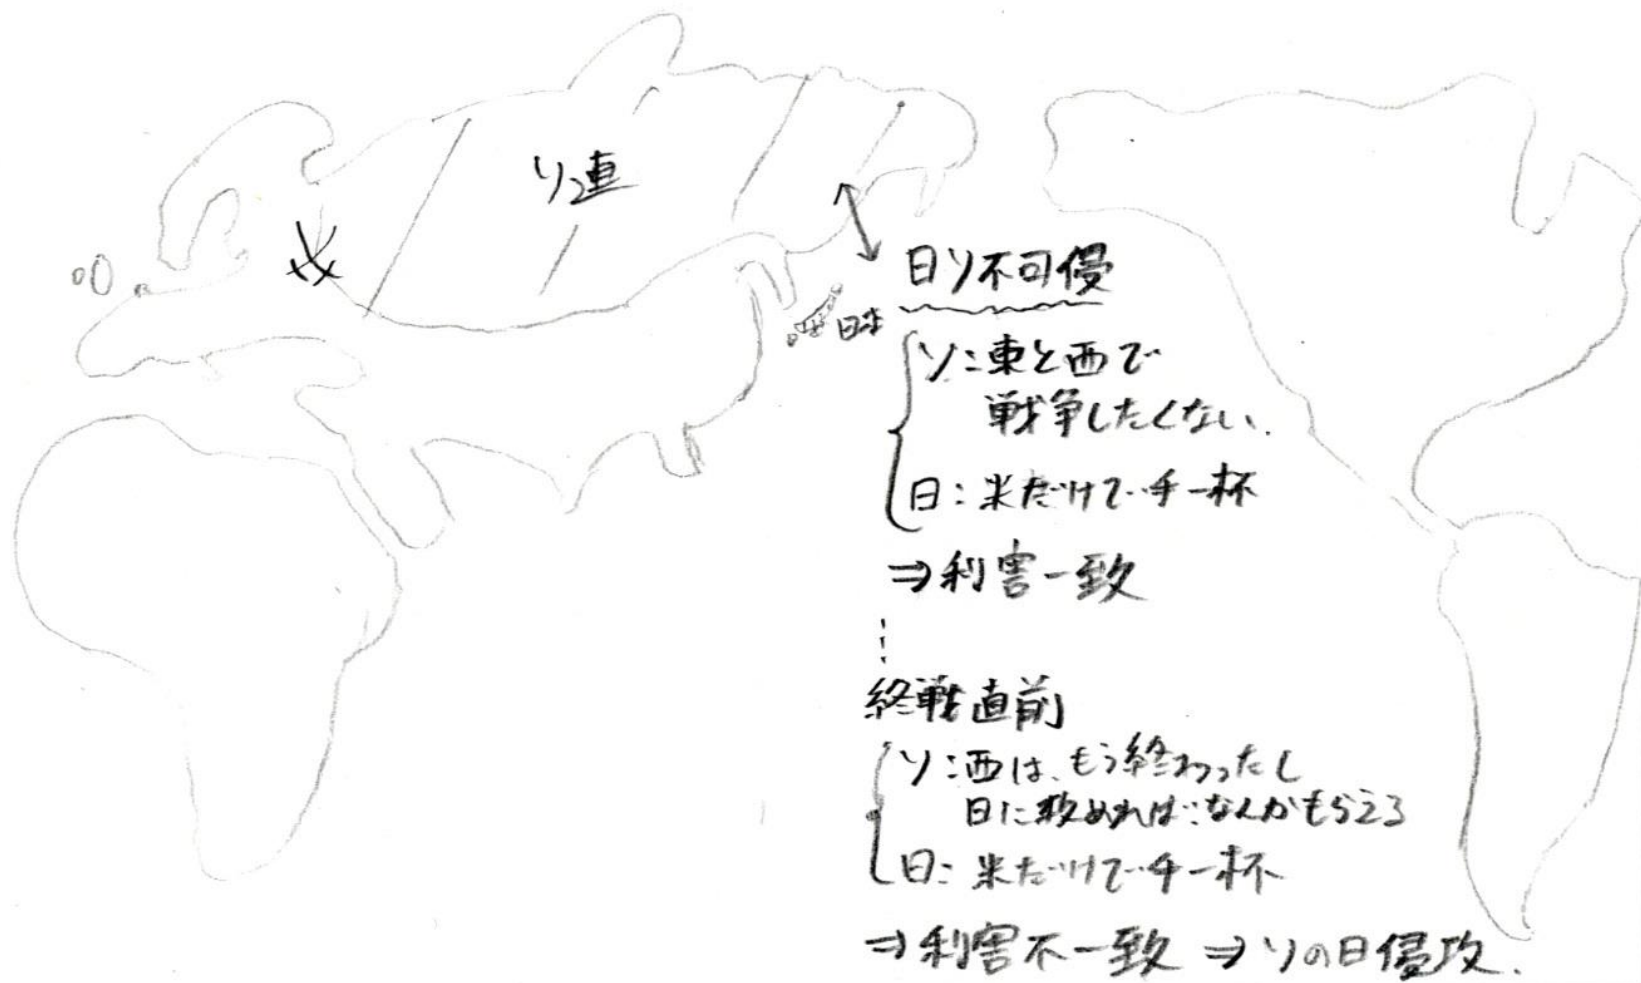 ソ連
日本
日ソ不可侵
ソ:東と西で
戦争したくない.
日:米だけで手一杯
⇒利害一致
終戦直前
ソ:西は、もう終わったし
日に攻めればなんかもらえる
日:米だけで手一杯
⇒利害不一致⇒ソの日侵攻.